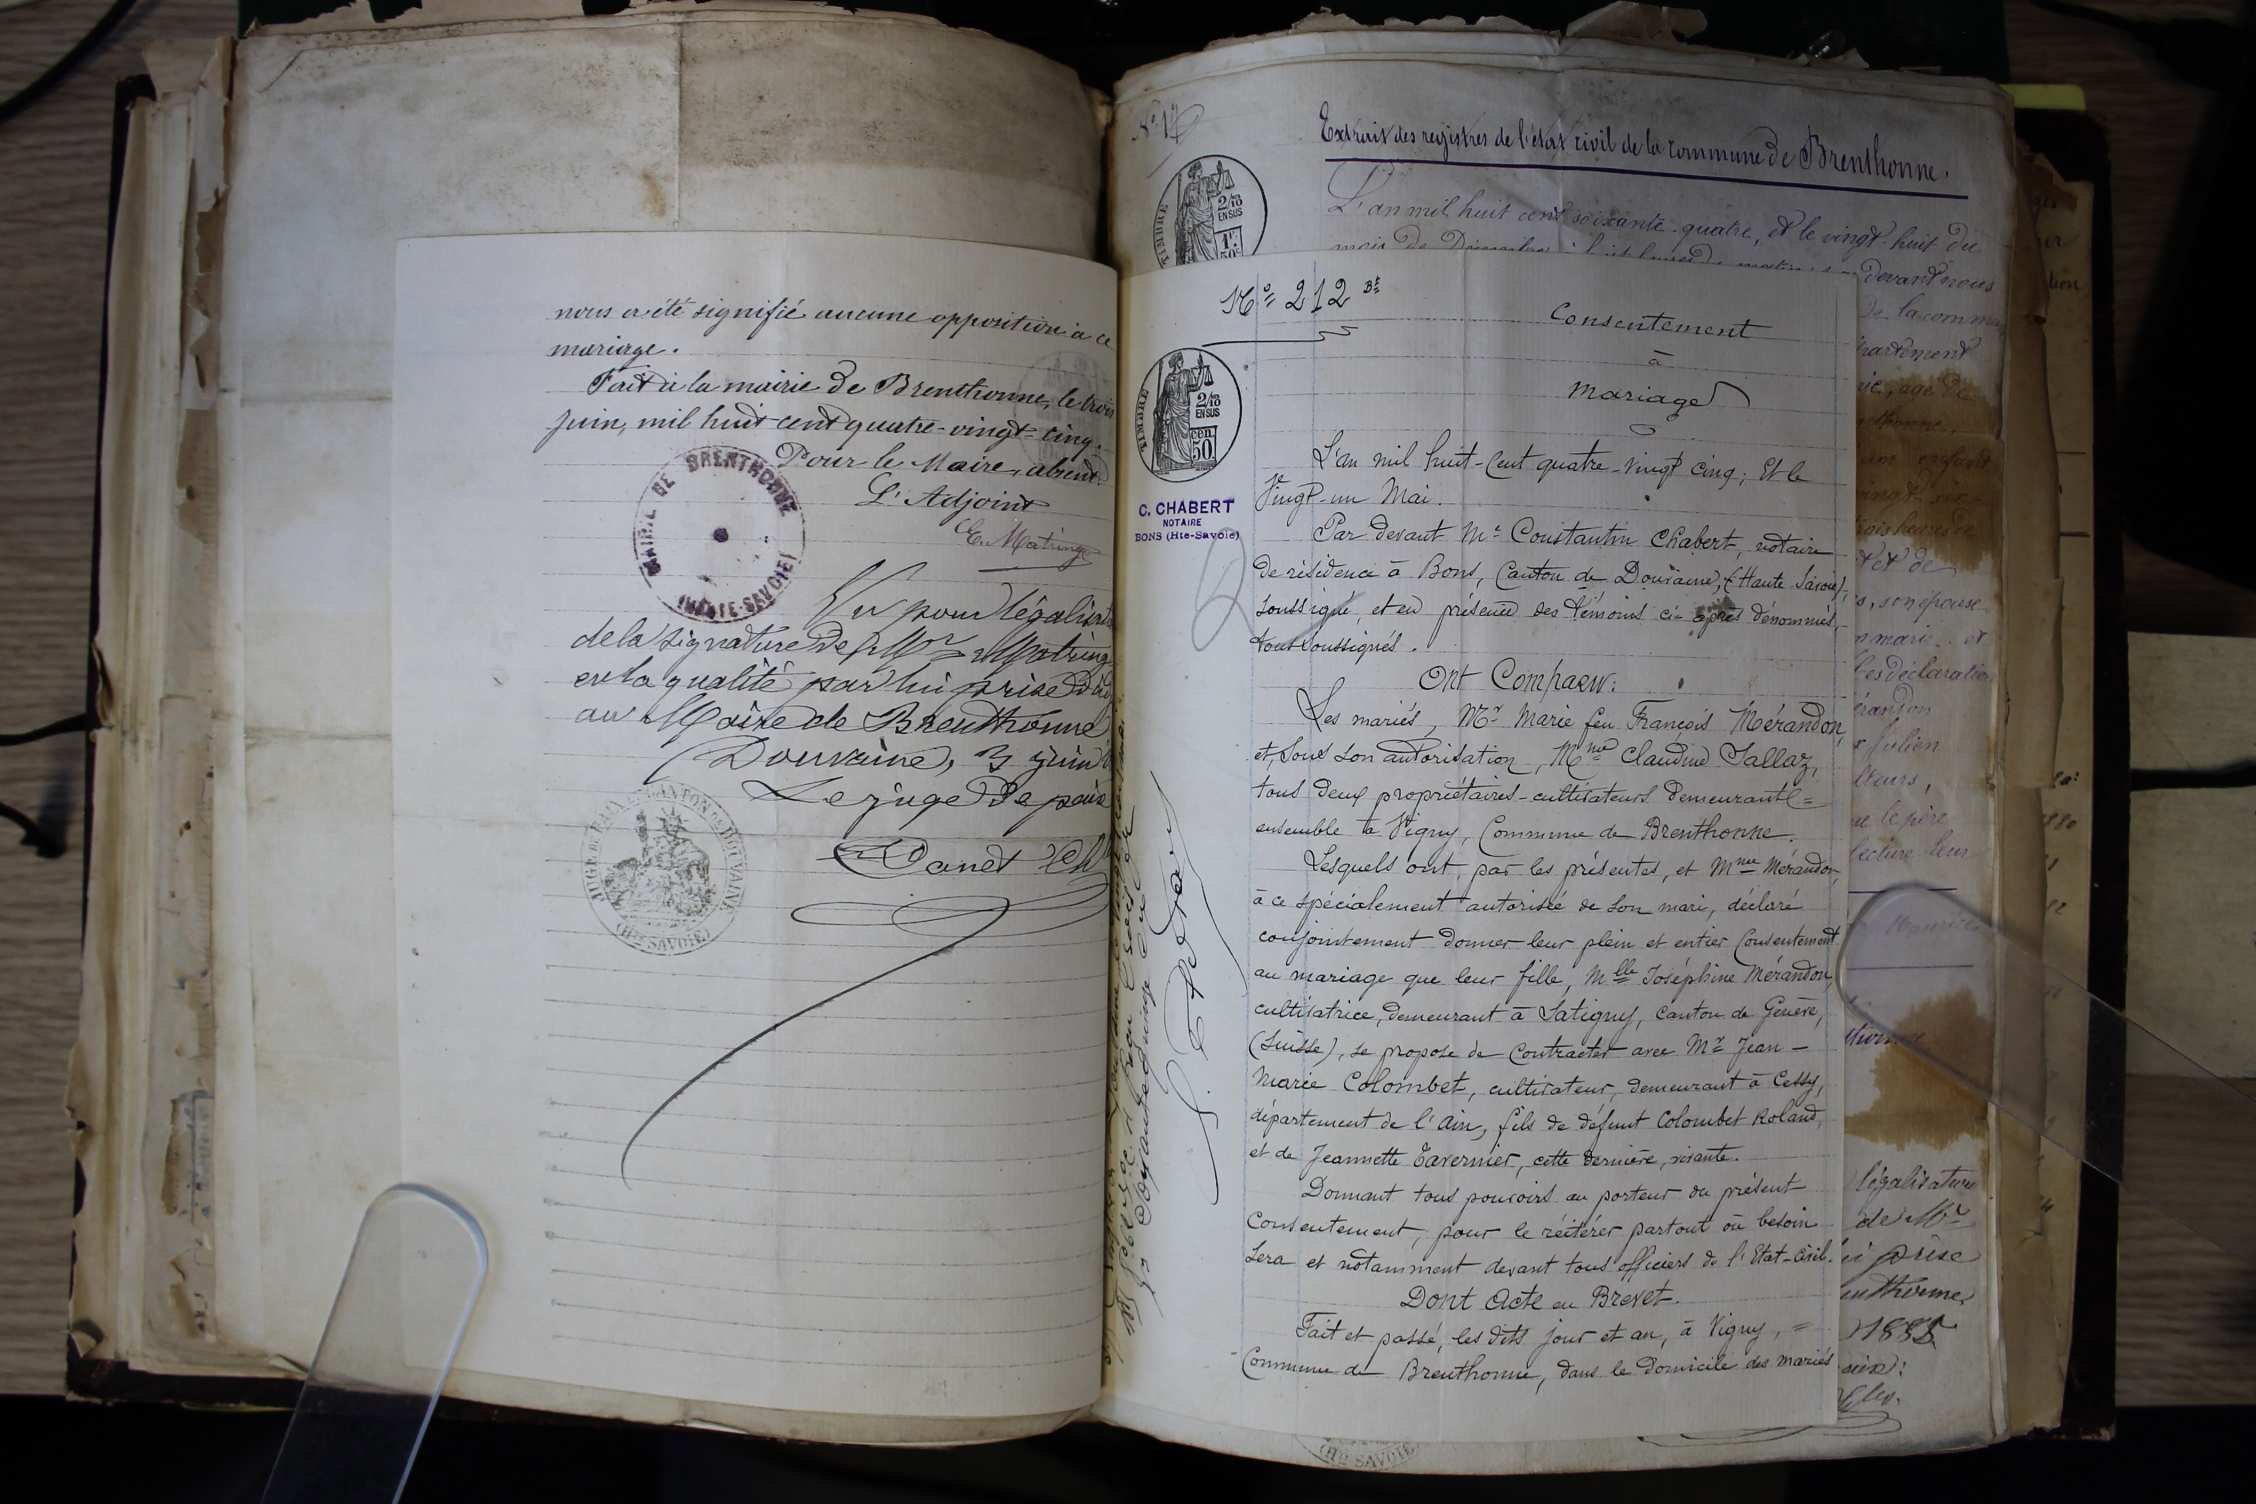 nous a été signifié aucune opposition à ce
mariage.
Fait à la mairie de Brenthonne, le trois
juin, mil huit cent quatre-vingt-cinq.
Pour le Maire, absent.
L'Adjoint
E. Matringe
MAIRIE DE BRENTHONNE
(HAUTE-SAVOIE)
Vu pour légalisat
de la signature de Mr Matring
et la qualité par lui prise d'adj
au Maire de Brenthonne
Douvaine, 3 juin
Le juge de paix
Danet
CANTON DE DOUVAINE
(Hte SAVOIE)
No 17
Extrait des registres de l'état civil de la commune de Brenthonne.
L'an mil huit cent soixante-quatre, et le vingt-huit du
mois de Décembre
devant nous
de la commu
partement
TIMBRE
2/10
EN SUS
1F.
50c
No 212 Bt
TIMBRE
2/10
EN SUS
cen
50
C. CHABERT
NOTAIRE
BONS (Hte-Savoie)
Consentement
à
Mariage
L'an mil huit-cent quatre-vingt cinq; Et le
Vingt-un Mai.
Par devant Me Constantin Chabert, notaire
de résidence à Bons, Canton de Douvaine, (Haute Savoie),
soussigné, et en présence des témoins ci-après dénommés,
tous soussignés.
Ont Comparu:
Les mariés, Mr Marie feu François Mérandon,
et, sous son autorisation, Mme Claudine Jallaz,
tous deux propriétaires-cultivateurs demeurant=
ensemble à Vigny, Commune de Brenthonne.
Lesquels ont, par les présentes, et Mme Mérandon,
à ce spécialement autorisée de son mari, déclaré
conjointement donner leur plein et entier Consentement
au mariage que leur fille, Mlle Joséphine Mérandon,
cultivatrice, demeurant à Satigny, Canton de Genève,
(Suisse), se propose de Contracter avec Mr Jean-
Marie Colombet, cultivateur, demeurant à Cessy,
département de l'Ain, fils de défunt Colombet Roland,
et de Jeannette Tavernier, cette dernière, vivante.
Donnant tous pouvoirs au porteur du présent
Consentement, pour le réitérer partout où besoin
sera et notamment devant tous officiers de l'Etat-Civil.
Dont Acte en Brevet.
Fait et passé, les dits jour et an, à Vigny, =
Commune de Brenthonne, dans le domicile des mariés
son épouse
mari et
Les déclaration
érandon
Julien
le père
lecture leur
légalisation
de Mr
prise
1885
(Hte SAVOIE)